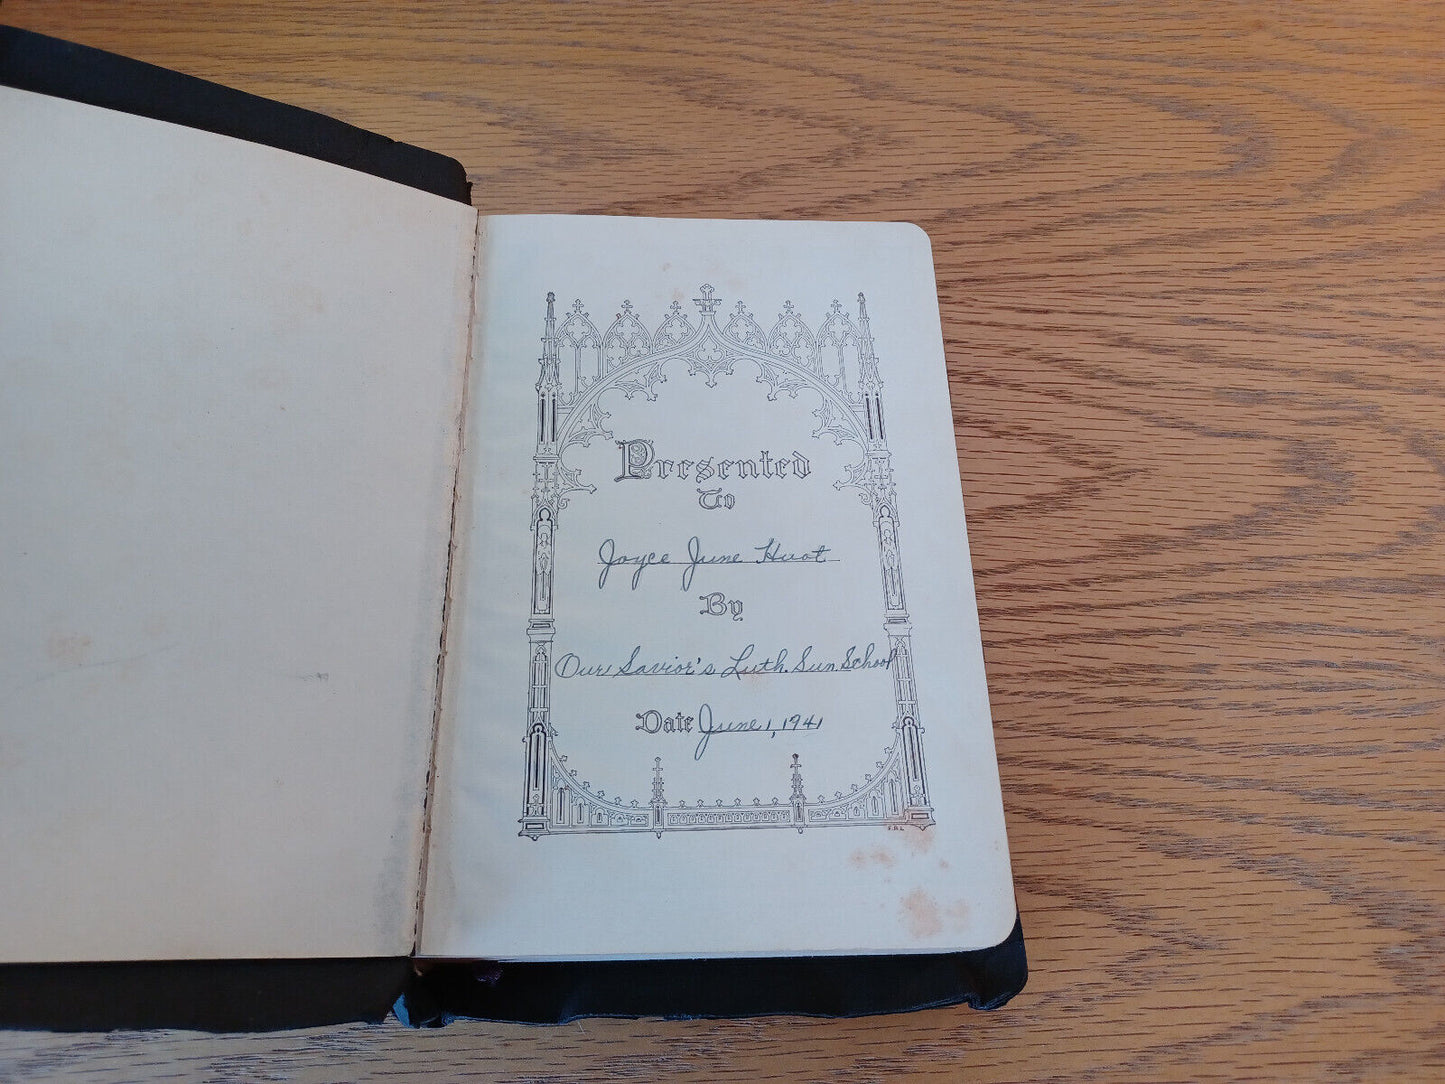 Presented
To
Joyce June Huot
By
Our Savior's Luth. Sun. School
Date June 1, 1941